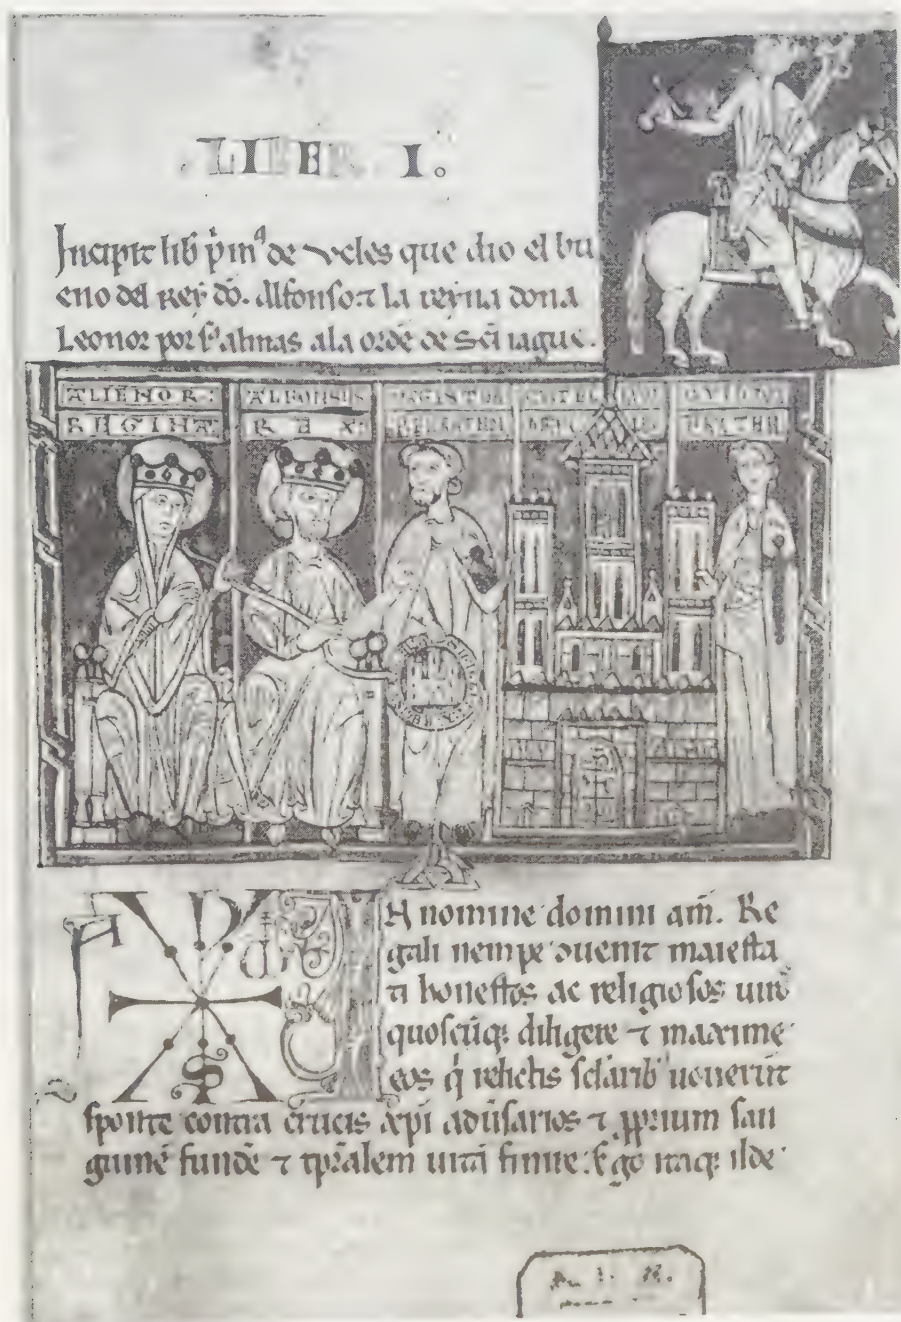 LIBER I.
Incipit lib p̄mº de Vcles que dio el bu
eno del Rey dō. Alfonso ⁊ la reyna dona
Leonor por s̄ almas ala ordē de Sc̄i iague.
ALIENOR: ALFONSUS MAGISTER
REGINA REX:
IN nomine domini am̄. Re
gali nempe ɔuenit maiesta
ti honestos ac religiosos uiros
quoscūq; diligere ⁊ maxime
eos q̄ relictis sc̄laribꝰ uouerūt
sponte contra crucis xp̄i adūsarios ⁊ ꝓprium san
guinē fundē ⁊ tp̄ralem uitā finire. Ego itaq; ilde